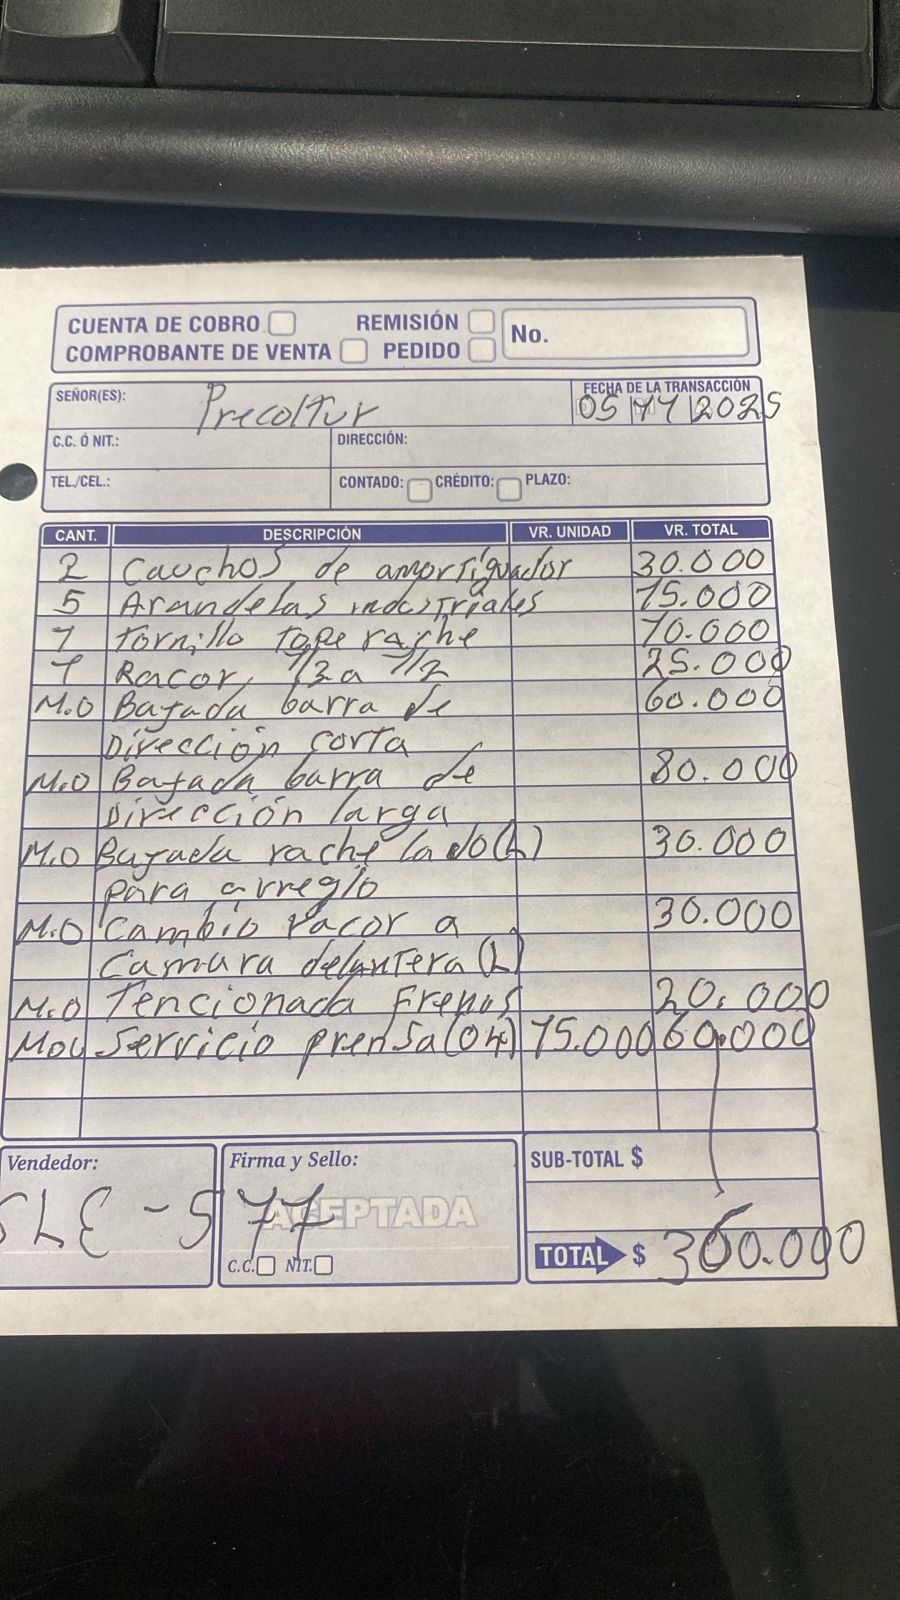 CUENTA DE COBRO REMISIÓN No.
COMPROBANTE DE VENTA PEDIDO
SEÑOR(ES): Precoltur FECHA DE LA TRANSACCIÓN
05 11 2025
C.C. Ó NIT.: DIRECCIÓN:
TEL./CEL.: CONTADO: CRÉDITO: PLAZO:
CANT. DESCRIPCIÓN VR. UNIDAD VR. TOTAL
2 Cauchos de amortiguador 30.000
5 Arandelas industriales 15.000
1 Tornillo tope rache 10.000
1 Racor 1/2 a 1/2 25.000
M.O Bajada barra de 60.000
Dirección corta
M.O Bajada barra de 80.000
Dirección larga
M.O Bajada rache lado (L) 30.000
para arreglo
M.O Cambio racor a 30.000
Camara delantera (L)
M.O Tencionada Frenos 20.000
Servicio prensa 15.000 60.000
Vendedor: Firma y Sello: SUB-TOTAL $
SLE-577
ACEPTADA
C.C. NIT. TOTAL $ 360.000